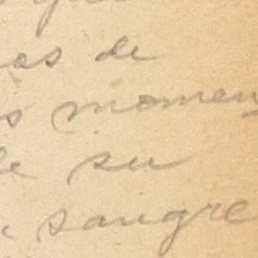 as de
s momen
le su
sangre